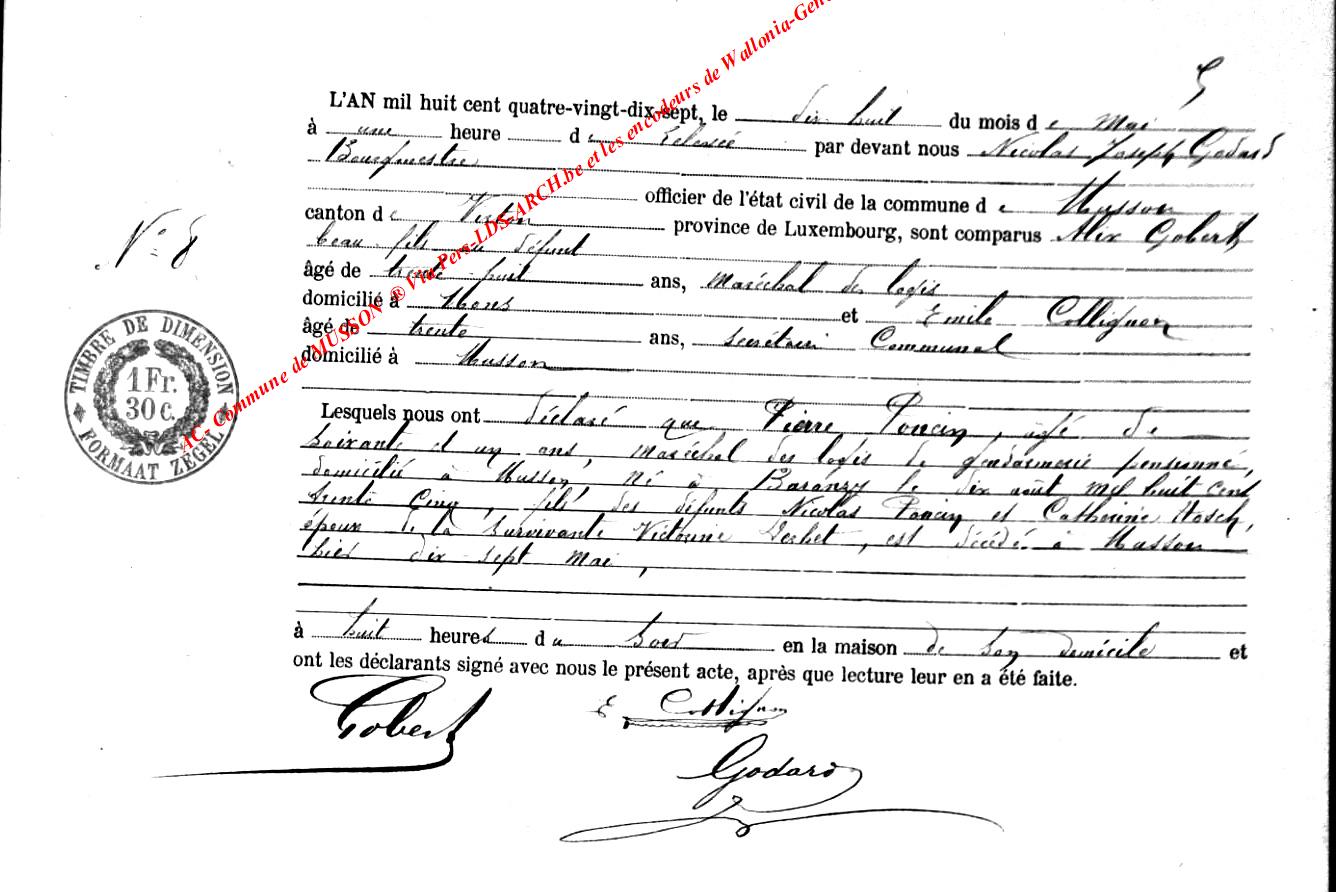 5
L'AN mil huit cent quatre-vingt-dix-sept, le dix huit du mois de Mai
à une heure de relevée par devant nous Nicolas Joseph Godard
Bourgmestre
officier de l'état civil de la commune de Musson
canton de Virton province de Luxembourg, sont comparus Alix Gobert
beau-fils du défunt
âgé de trente-huit ans, maréchal des logis
domicilié à Mons et Emile Collignon
âgé de trente ans, secrétaire Communal
domicilié à Musson
Lesquels nous ont déclaré que Pierre Poncin, âgé de
soixante et un ans, maréchal des logis de gendarmerie pensionné,
domicilié à Musson, né à Baranzy le dix août mil huit cent
trente cinq, fils des défunts Nicolas Poncin et Catherine Hosch,
époux de la survivante Victorine, est décédé à Musson
hier dix sept mai,
à huit heures du soir en la maison de son domicile et
ont les déclarants signé avec nous le présent acte, après que lecture leur en a été faite.
Gobert
E Collignon
Godard
N° 8
TIMBRE DE DIMENSION
1 Fr.
30 c.
FORMAAT ZEGEL
AC- Commune de MUSSON ® Via Pers-LDS-ARCH.be et les encodeurs de Wallonia-Gen